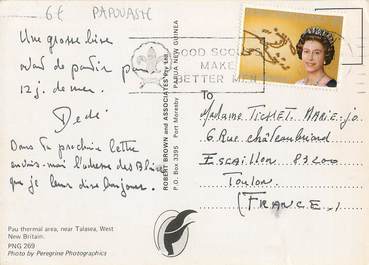 6€ PAPOUASIE
Une grosse bise
avant de partir pour
12 j. de mer.
Dédé
Dans ta prochaine lettre
envois-moi l'adresse des
que je leur dise bonjour.
Pau thermal area, near Talasea, West
New Britain.
PNG 269
Photo by Peregrine Photographics
ROBERT BROWN and ASSOCIATES Pty Ltd.
P.O. Box 3395 Port Moresby PAPUA NEW GUINEA
GOOD SCOUTS
MAKE
BETTER MEN
Madame TICHET. MARIE-JO
6 Rue châteaubriand
ESCAILLON 83200
Toulon
(FRANCE.)